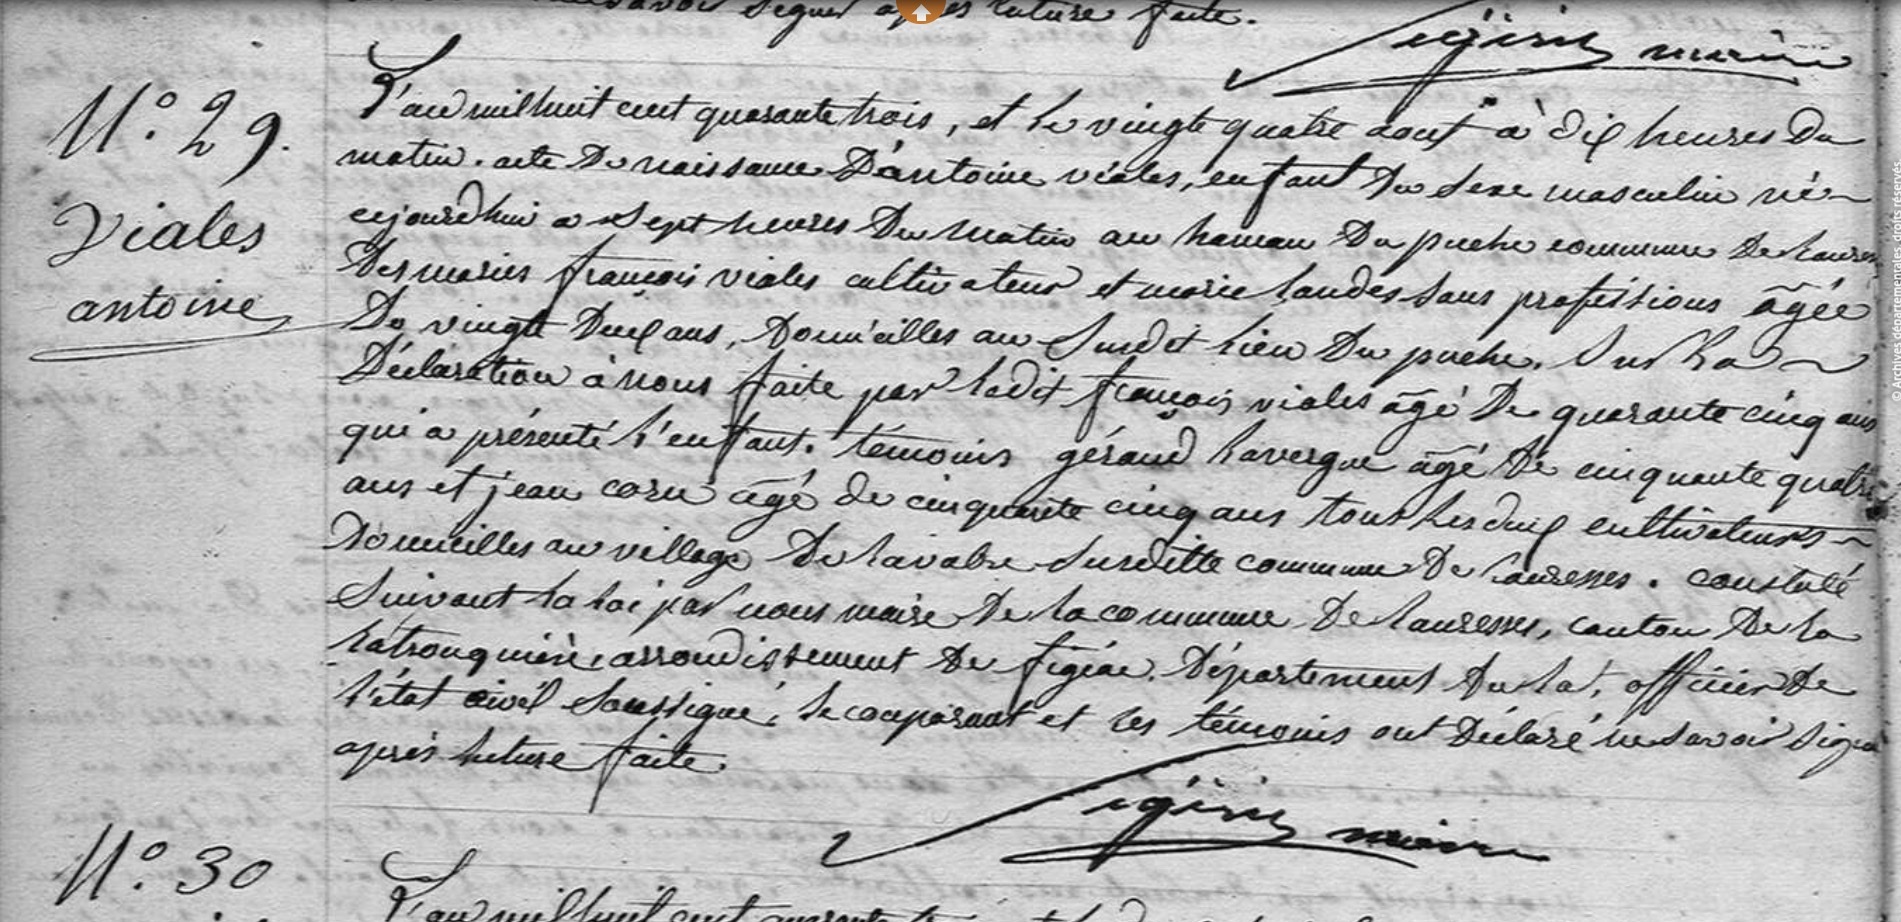 savoir signer après lecture faite.
maire
N.° 29.
Viales
antoine
L'an mil huit cent quarante trois, et le vingt quatre aout à dix heures du
matin. acte de naissance d'antoine viales, enfant du sexe masculin né
cejourdhui a sept heures du matin au hameau du puche commune de lauresses
des maries françois viales cultivateur et marie landes sans professions âgée
de vingt deux ans, domicilles au susdit lieu du puche. Sur la
déclaration à nous faite par ledit françois viales âgé de quarante cinq ans
qui a présenté l'enfant. témoins géraud lavergne âgé de cinquante quatre
ans et jean âgé de cinquante cinq ans tout les deux cultivateurs
domicilles au village de lavabre susditte commune de lauresses. constaté
Suivant la loi par nous maire de la commune de lauresses, canton de la
latronquière arrondissement de figéac. département du lot, officier de
l'état civil soussigné, le comparant et les témoins ont déclaré ne savoir signer
après lecture faite.
maire
N.° 30
L'an mil huit cent quarante
© Archives départementales, droits réservés